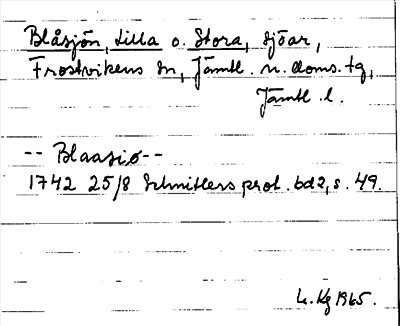 Blåsjön, Lilla o. Stora, sjöar,
Frostvikens sn, Jämtl. n. doms. tg,
Jämtl. l.
-- Blaasiø --
1742 25/8 Schnitlers prot. bd 2, s. 49.
L. Kg 1965.